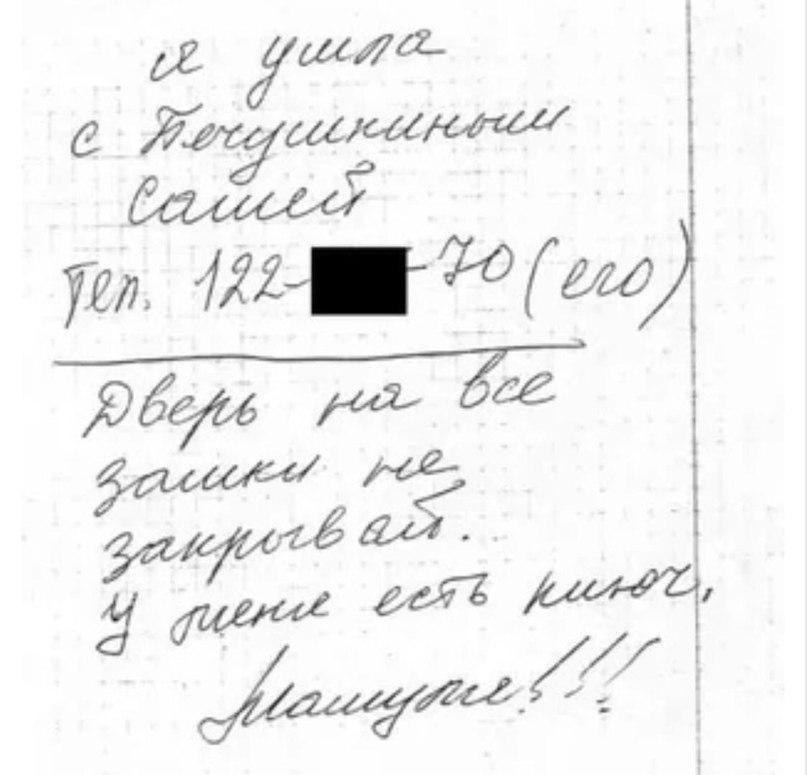 я ушла
с Пичушкиным
Сашей
Тел. 122- -70 (его)
Дверь на все
замки не
закрывай.
У меня есть ключ.
Мамуля!!!